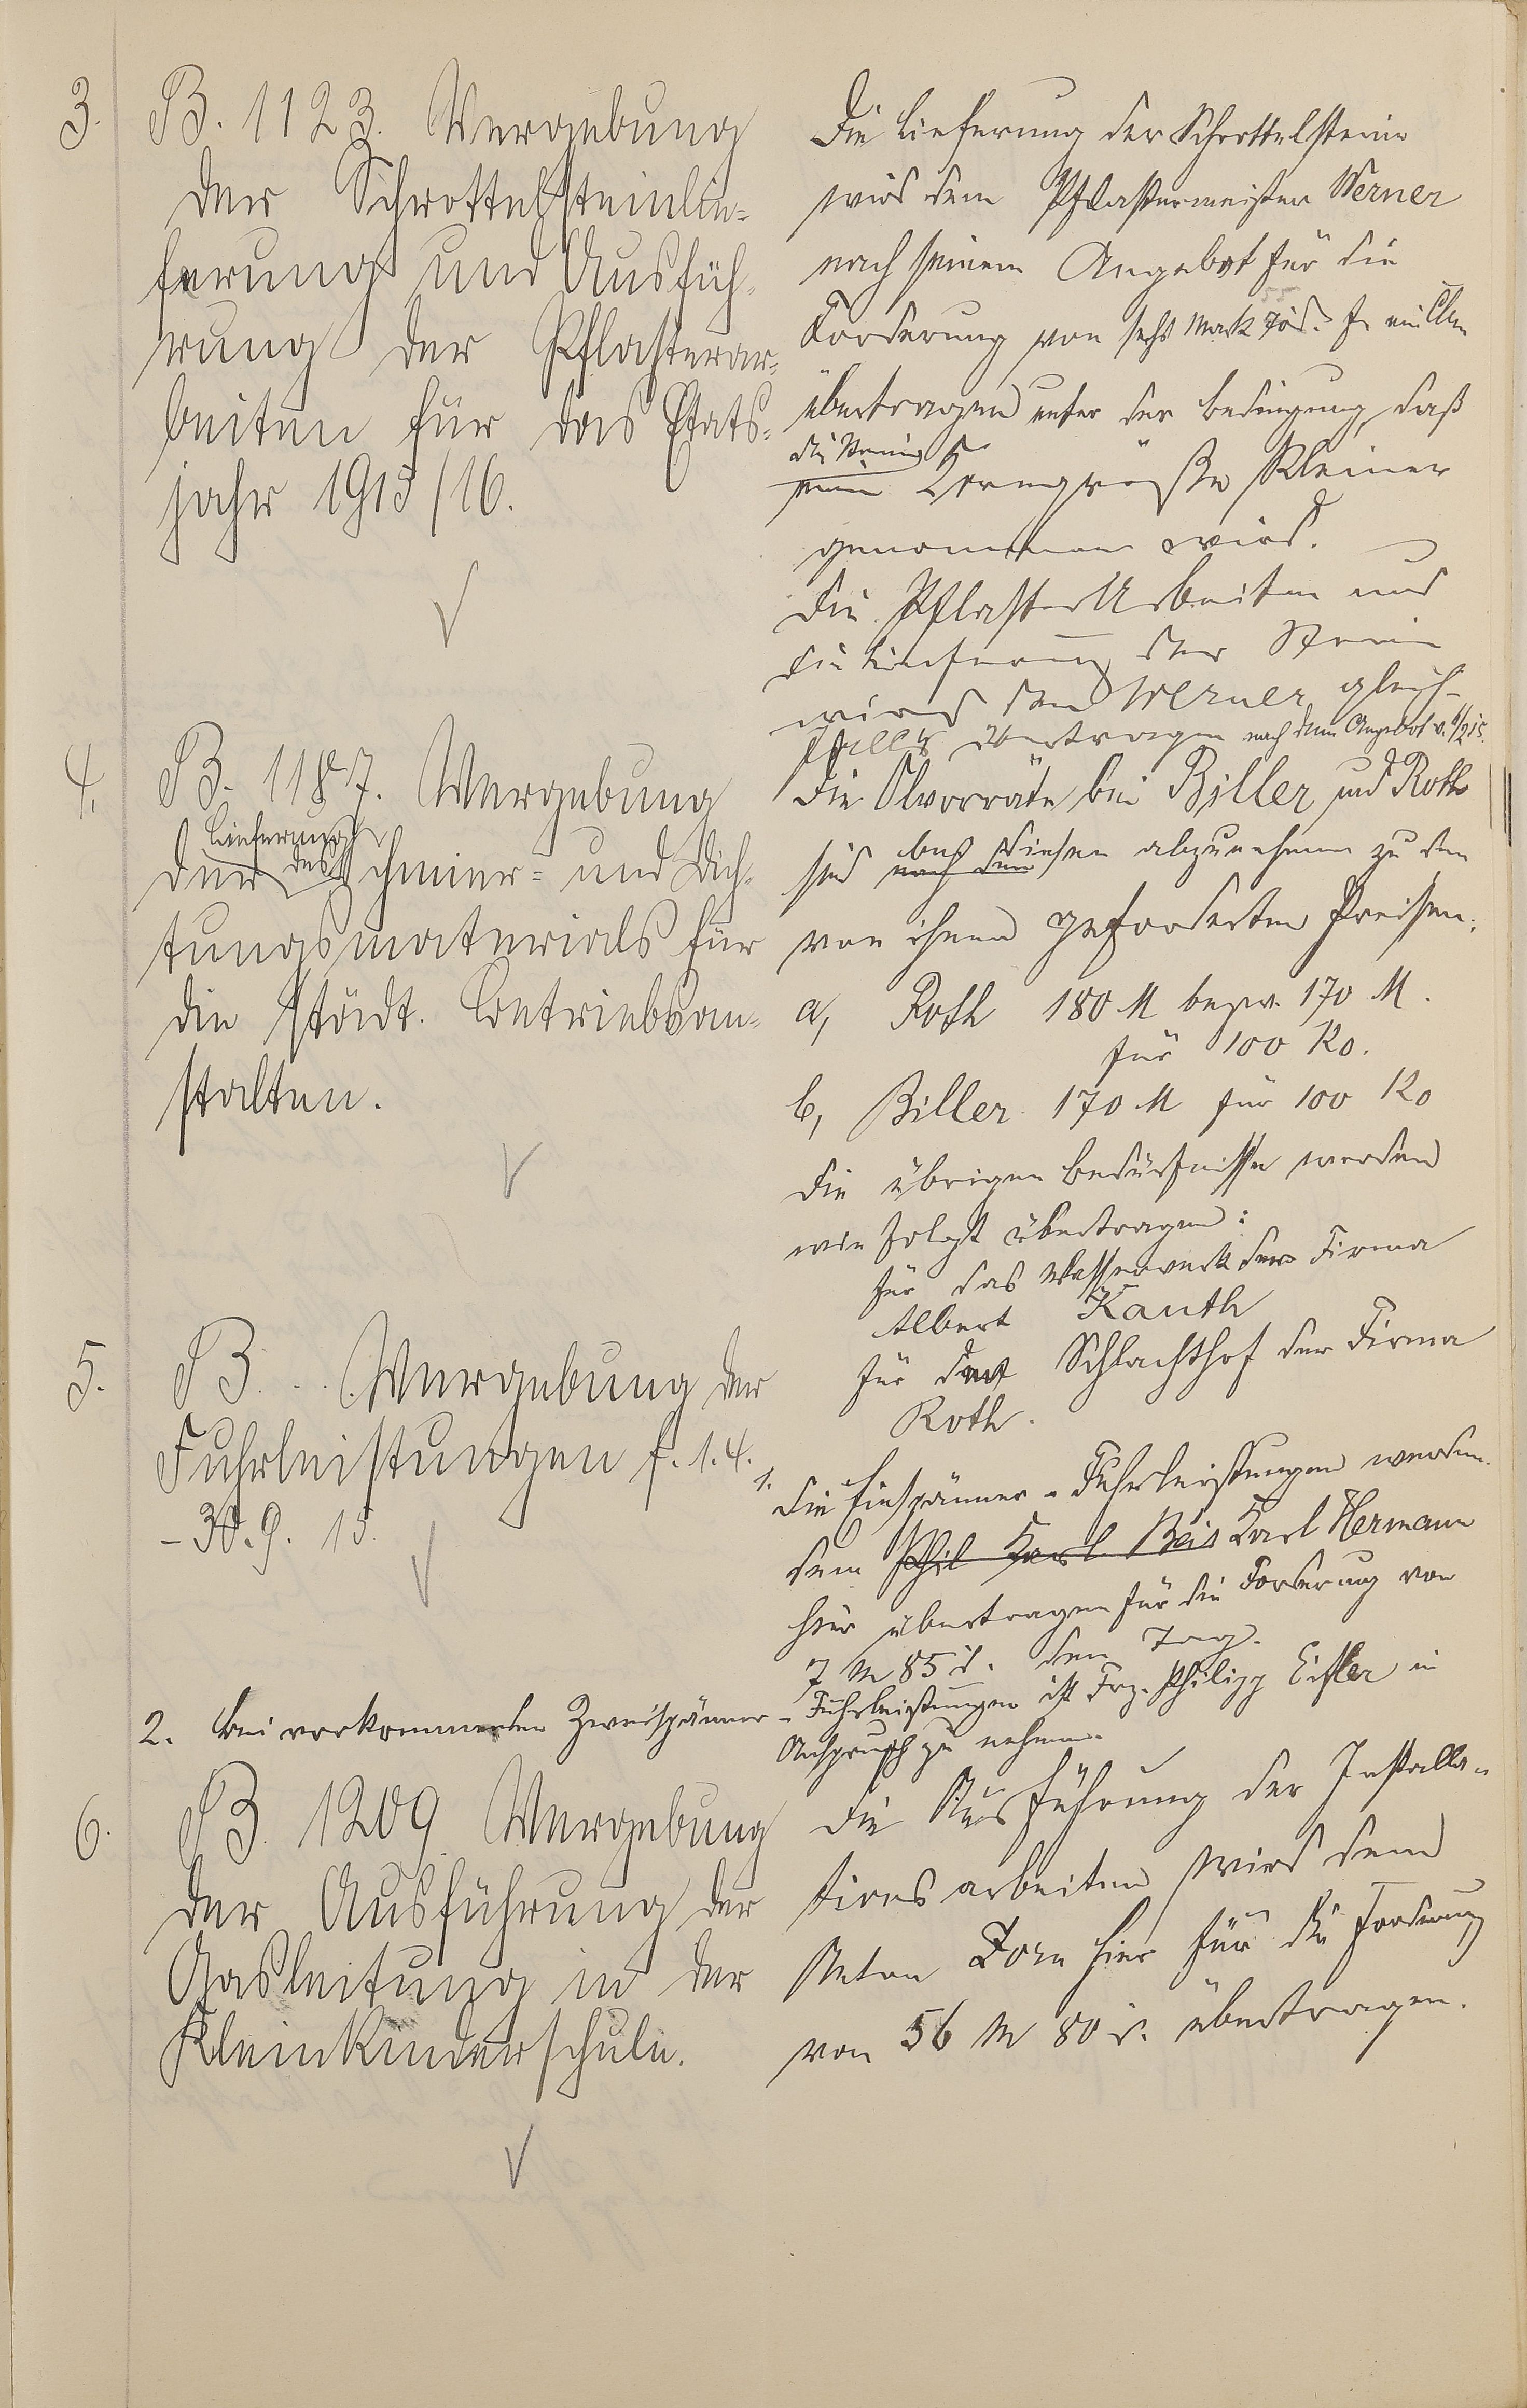 3.
B. 1123. Vergebung
der Schrottelsteinlie-
ferung und Ausfüh-
rung der Pflasterar-
beiten für das Etats-
jahr 1915/16.
Die Lieferung der Schrottelsteine
wird dem Pflastermeister Werner
nach seinem Angebot für die
Forderung von sechs Mark
übertragen unter der Bedingung, daß
die Steine
eine Korngröße kleiner
genommen wird.
Die Pflaster Arbeiten und
die Lieferung der Steine
wird dem Werner gleich-
falls übertragen nach dem Angebot v.
4.
B. 1187. Vergebung
Lieferung
der des Schmier- und Dich-
tungsmaterials für
die städt. Betriebsan-
stalten.
Die Ölvorräte bei Biller und Roth
sind nach den bei diesen abzunehmen zu den
von ihnen geforderten Preisen.
a, Roth 180 M bezw. 170 M.
für 100 Ko.
b, Biller 170 M für 100 Ko
Die übrigen Bedürfnisse werden
wie folgt übertragen:
für das Wasserwerk der Firma
Albert Kauth
für den Schlachthof der Firma
Roth.
5.
B. . . Vergebung der
Fuhrleistungen f. 1. 4.
- 30. 9. 15.
1. Die Einspänner-Fuhrleistungen werden
dem Phil Karl Beis Karl Hermann
hier übertragen für die Forderung von
7 M 85 d. den Tag.
2. Bei vorkommenden Zweispänner-Fuhrleistungen ist Frz. Philipp Eifler in
Anspruch zu nehmen.
6.
B 1209. Vergebung
der Ausführung der
Gasleitung in der
Kleinkinderschule.
Die Ausführung der Installa-
tionsarbeiten wird dem
Anton Dorn hier für die Forderung
von 56 M 80 d. übertragen.